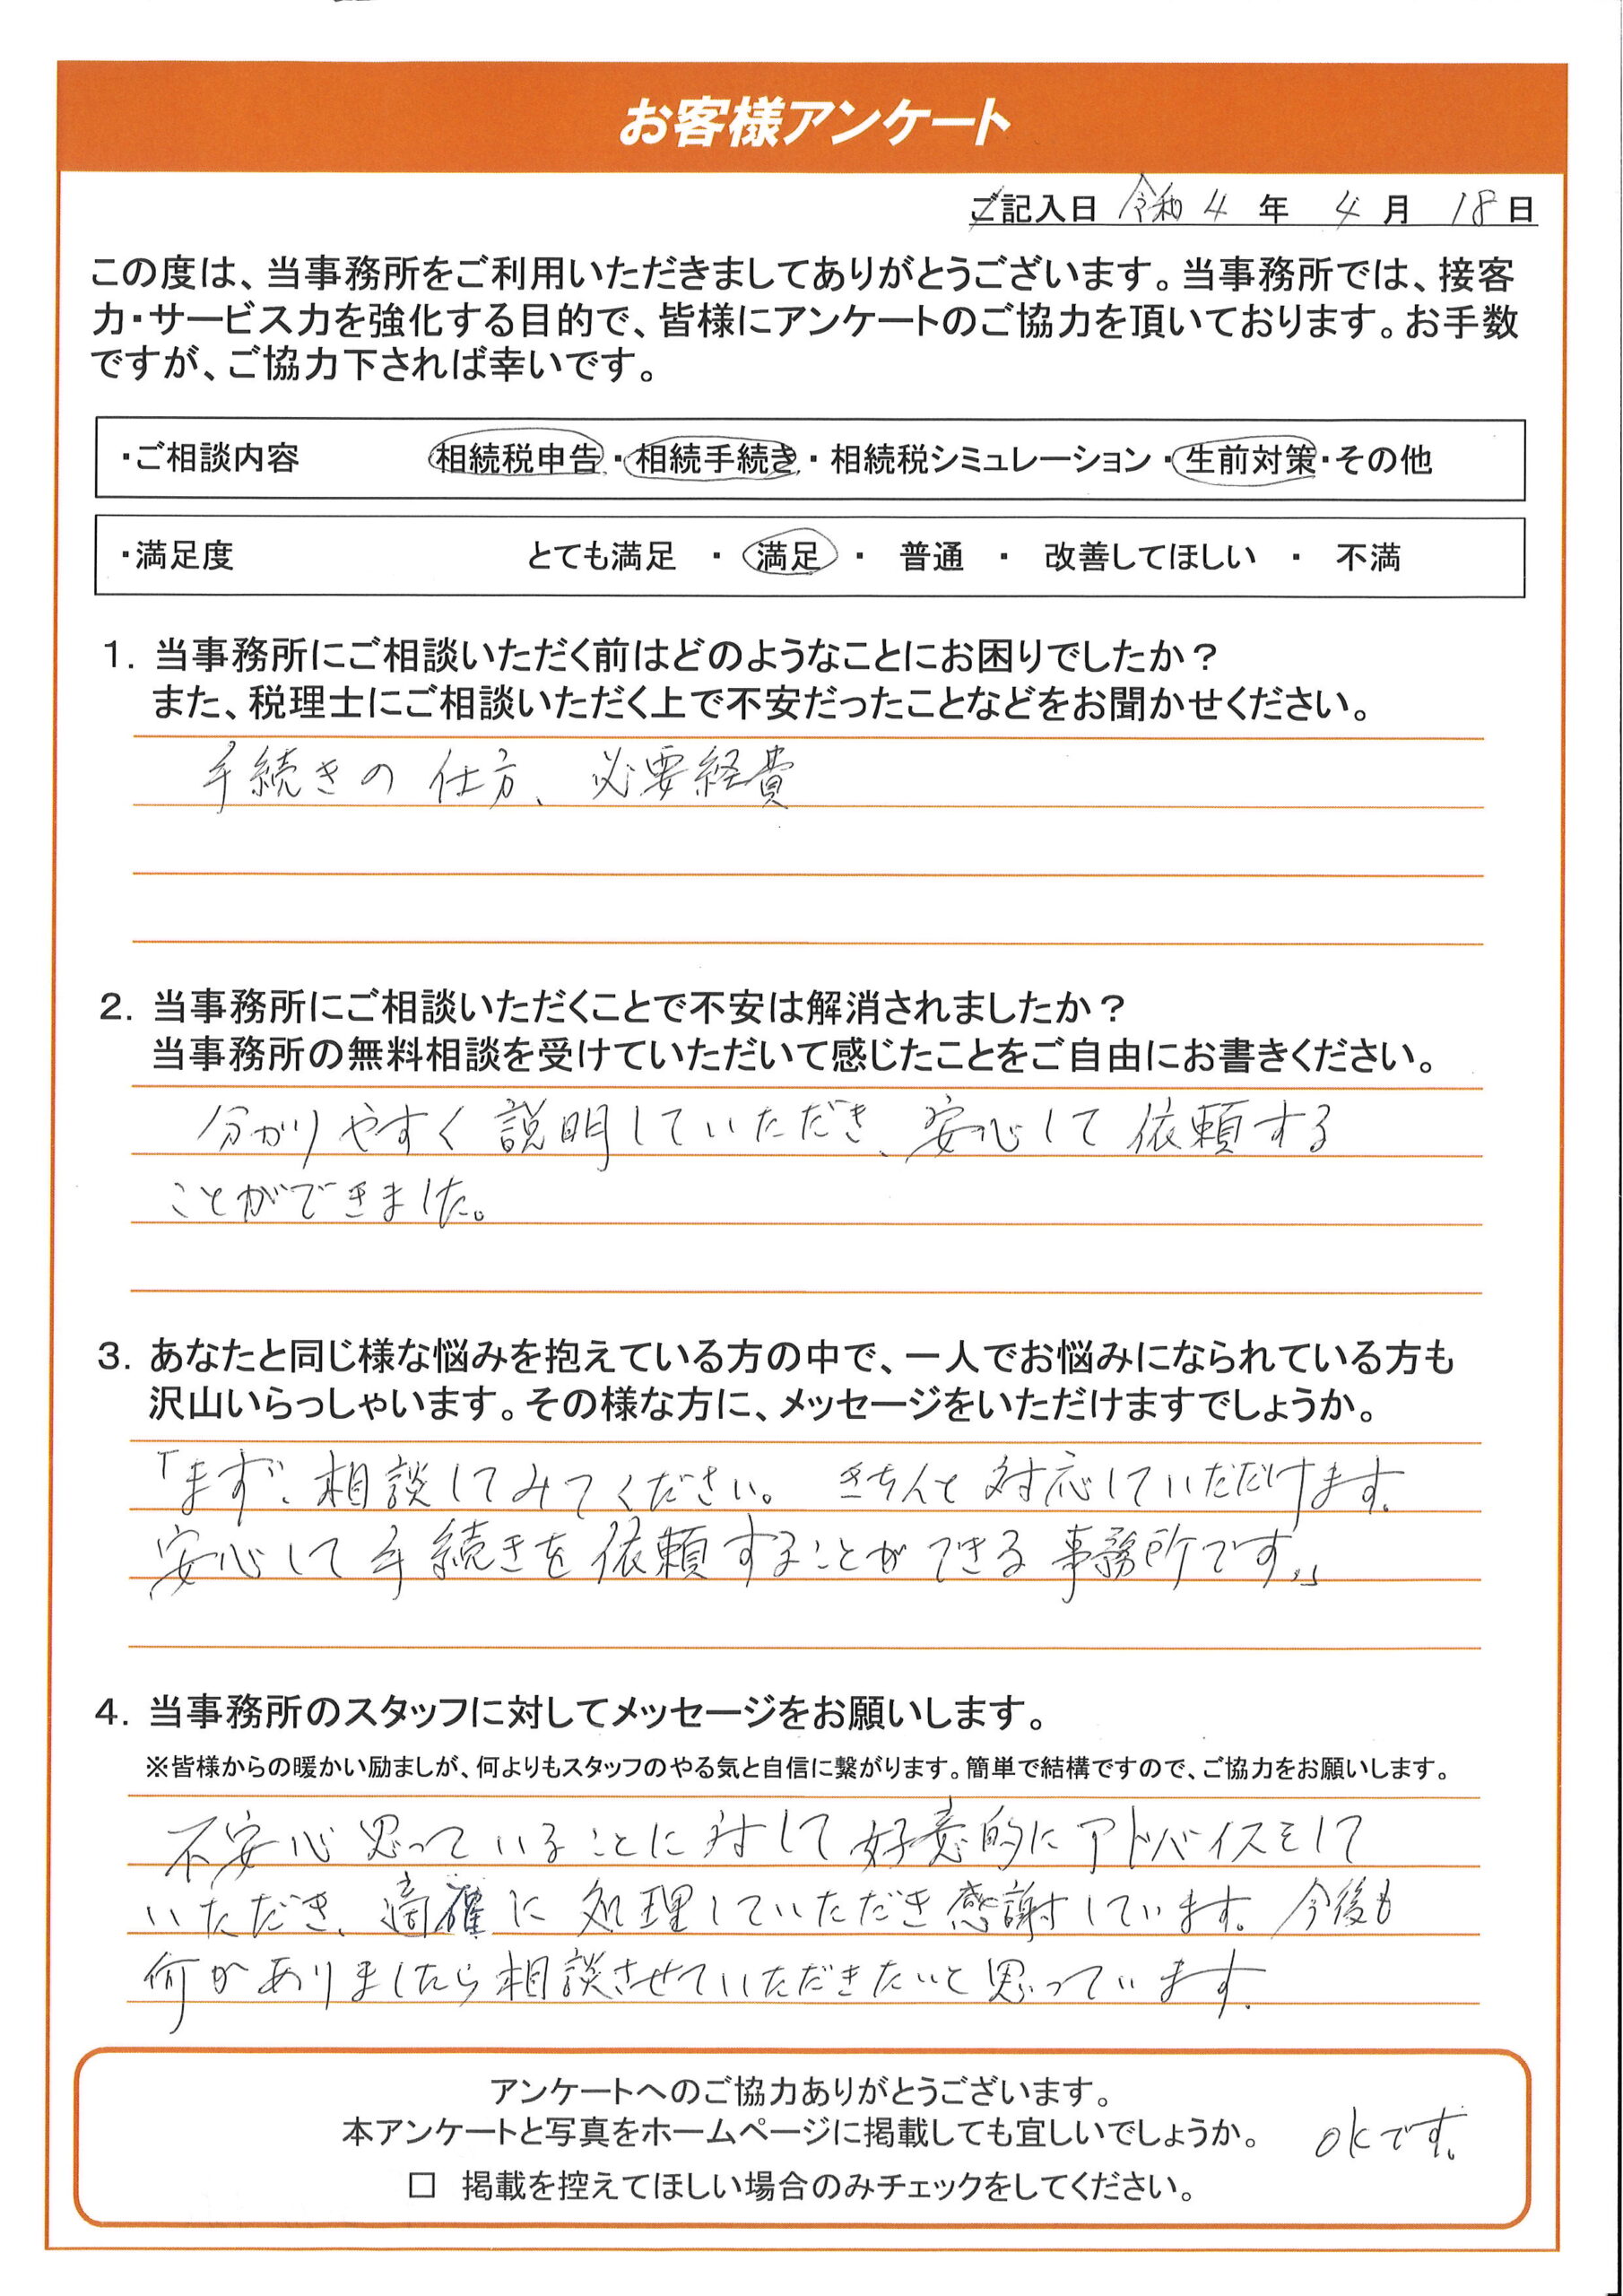 お客様アンケート
ご記入日 令和4年 4月 18日
この度は、当事務所をご利用いただきましてありがとうございます。当事務所では、接客
力・サービス力を強化する目的で、皆様にアンケートのご協力を頂いております。お手数
ですが、ご協力下されば幸いです。
・ご相談内容 相続税申告・相続手続き・相続税シミュレーション・生前対策・その他
・満足度 とても満足 ・ 満足 ・ 普通 ・ 改善してほしい ・ 不満
1. 当事務所にご相談いただく前はどのようなことにお困りでしたか？
また、税理士にご相談いただく上で不安だったことなどをお聞かせください。
手続きの仕方、必要経費
2. 当事務所にご相談いただくことで不安は解消されましたか？
当事務所の無料相談を受けていただいて感じたことをご自由にお書きください。
分かりやすく説明していただき、安心して依頼する
ことができました。
3. あなたと同じ様な悩みを抱えている方の中で、一人でお悩みになられている方も
沢山いらっしゃいます。その様な方に、メッセージをいただけますでしょうか。
「まず、相談してみてください。 きちんと対応していただけます。
安心して手続きを依頼することができる事務所です。」
4. 当事務所のスタッフに対してメッセージをお願いします。
※皆様からの暖かい励ましが、何よりもスタッフのやる気と自信に繋がります。簡単で結構ですので、ご協力をお願いします。
不安心思っていることに対して好意的にアドバイスをして
いただき、適確に処理していただき感謝しています。今後も
何かありましたら相談させていただきたいと思っています。
アンケートへのご協力ありがとうございます。
本アンケートと写真をホームページに掲載しても宜しいでしょうか。 okです。
□ 掲載を控えてほしい場合のみチェックをしてください。